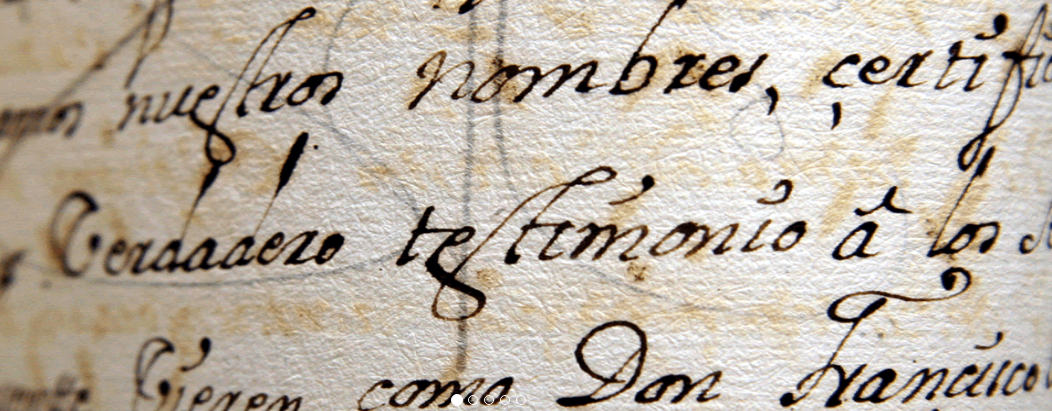 nuestros nombres, çertifi
Verdadero testimonio â los
Vieren como Don Francisco